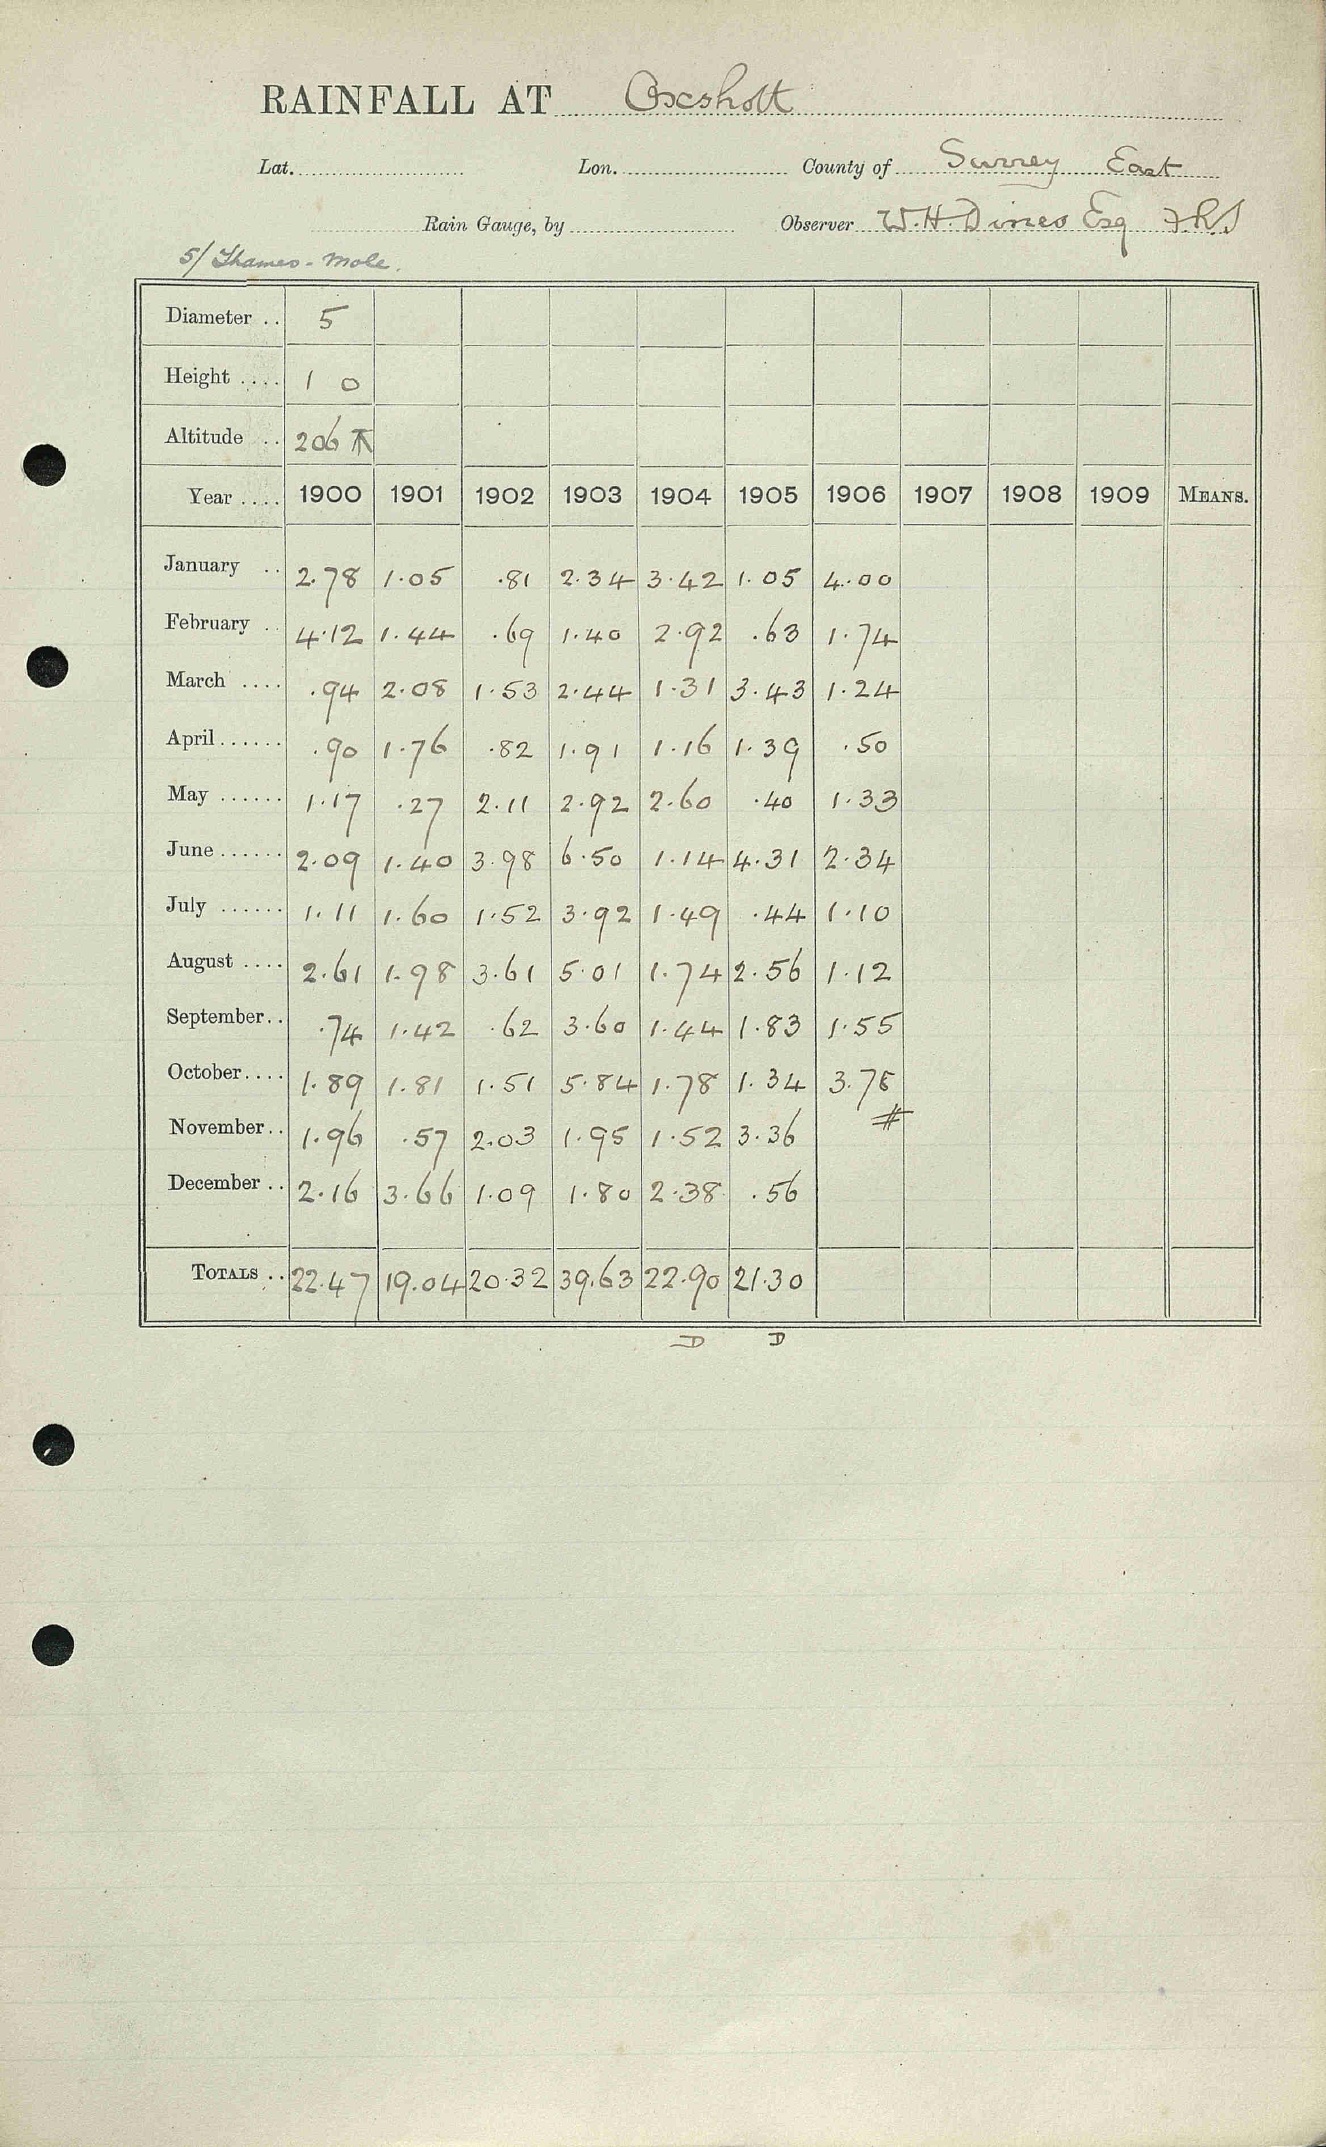 RAINFALL AT Oxshott
Lat. Lon. County of Surrey East
Rain Gauge, by Observer W. H. Dines Esq FRS
5/ Thames - Mole.
Diameter .. 5
Height .... 1 0
Altitude .. 206
Year .... 1900 1901 1902 1903 1904 1905 1906 1907 1908 1909 MEANS.
January .. 2.78 1.05 .81 2.34 3.42 1.05 4.00
February .. 4.12 1.44 .69 1.40 2.92 .63 1.74
March .... .94 2.08 1.53 2.44 1.31 3.43 1.24
April...... .90 1.76 .82 1.91 1.16 1.39 .50
May ...... 1.17 .27 2.11 2.92 2.60 .40 1.33
June...... 2.09 1.40 3.98 6.50 1.14 4.31 2.34
July ...... 1.11 1.60 1.52 3.92 1.49 .44 1.10
August .... 2.61 1.98 3.61 5.01 1.74 2.56 1.12
September.. .74 1.42 .62 3.60 1.44 1.83 1.55
October.... 1.89 1.81 1.51 5.84 1.78 1.34 3.78
November.. 1.96 .57 2.03 1.95 1.52 3.36 #
December .. 2.16 3.66 1.09 1.80 2.38 .56
TOTALS .. 22.47 19.04 20.32 39.63 22.90 21.30
D D